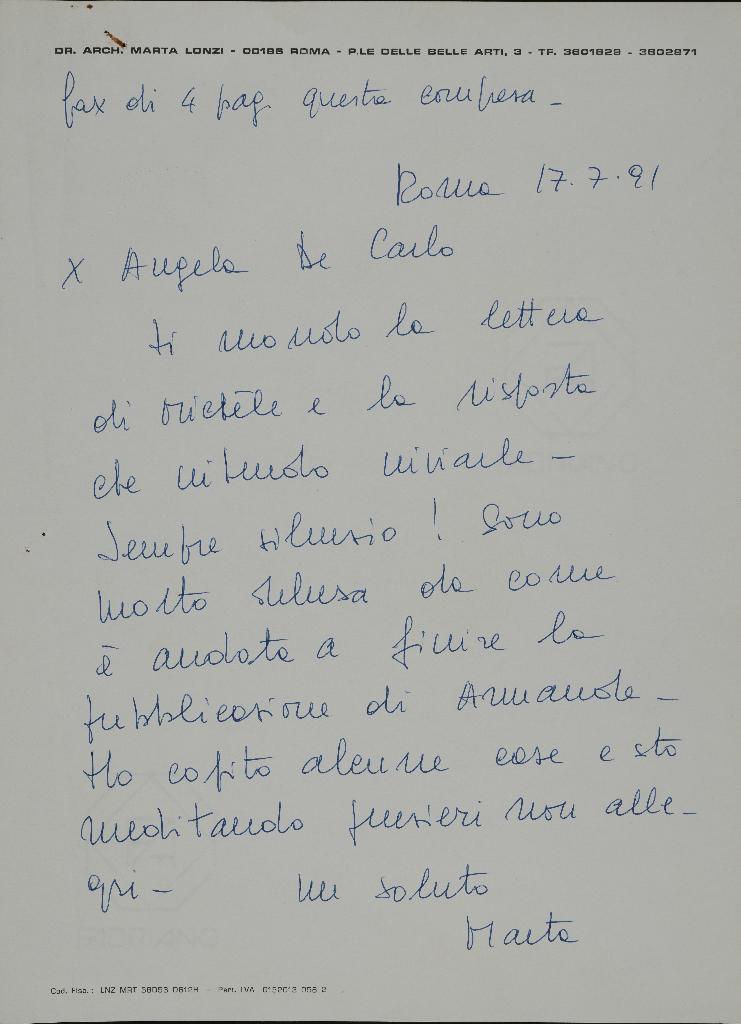 DR. ARCH. MARTA LONZI - 00186 ROMA - P.LE DELLE BELLE ARTI, 3 - TF. 3601829 - 3602871
fax di 4 pag. questa compresa -
Roma 17.7.91
x Angela De Carlo
ti mando la lettera
di Michèle e la risposta
che intendo inviarle -
Sempre silenzio! Sono
molto delusa da come
è andata a finire la
pubblicazione di Armande -
Ho capito alcune cose e sto
meditando pensieri non alle-
gri - un saluto
Marta
Cod. Fisc.: LNZ MRT 38D53 D612H - Part. IVA 0152013 058 2